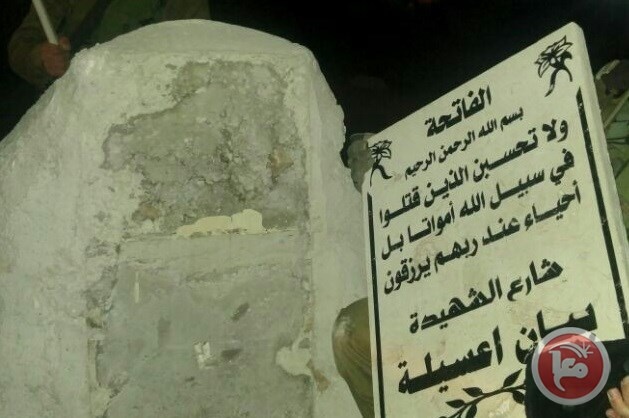 الفاتحة
بسم الله الرحمن الرحيم
ولا تحسبن الذين قتلوا
في سبيل الله أمواتا بل
أحياء عند ربهم يرزقون
شارع الشهيدة
بيان اعسيلة
معا